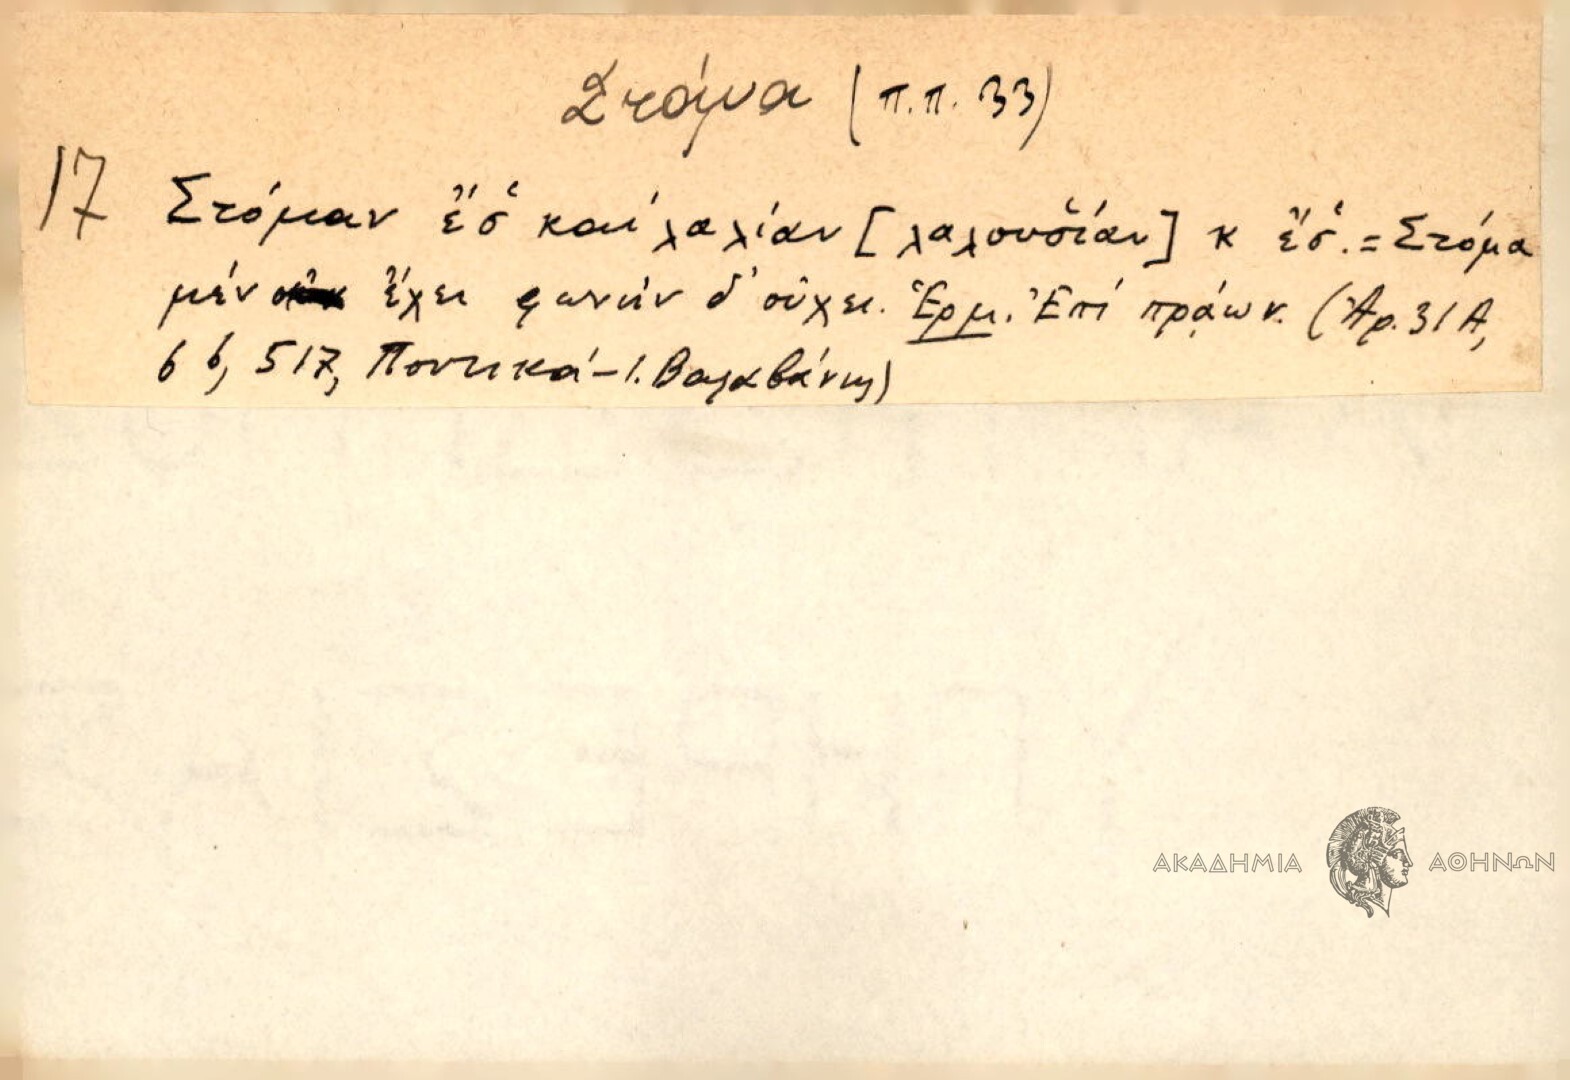 Στόμα (π.π. 33)
17 Στόμαν ἔ̓σ̌ καὶ λαλίαν [λαλουσ̌ίαν] κ ἔ̓σ̌. = Στόμα
μὲν ἔχει φωνὴν δ' οὔχει. Ἑρμ. Ἐπὶ πράων. (Ἀρ. 31 Α,
6 6, 517, Ποντικά - Ι. Βαλαβάνης)
ΑΚΑΔΗΜΙΑ ΑΘΗΝΩΝ